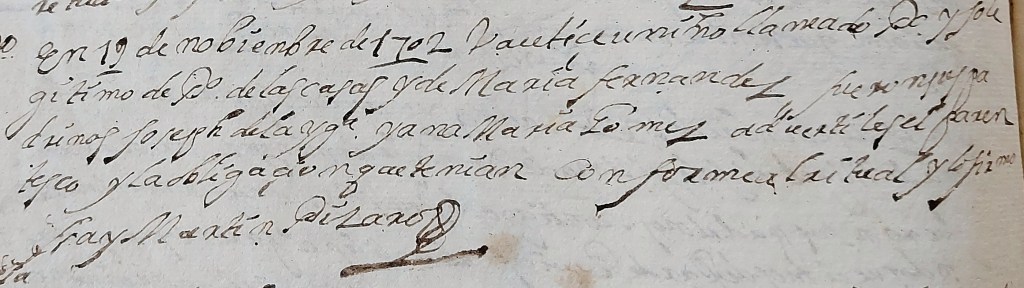 En 19 de nobienbre de 1702 Vautice un niño llamado Po. y fue le
gitimo de Po. de las casas y de Maria fernandes fueron sus pa
drinos Joseph de la y ana Maria Gomes advertiles el paren
tesco y la obligaçion que tenian Conforme al ritual y lo firme
fray Martin Pizaro